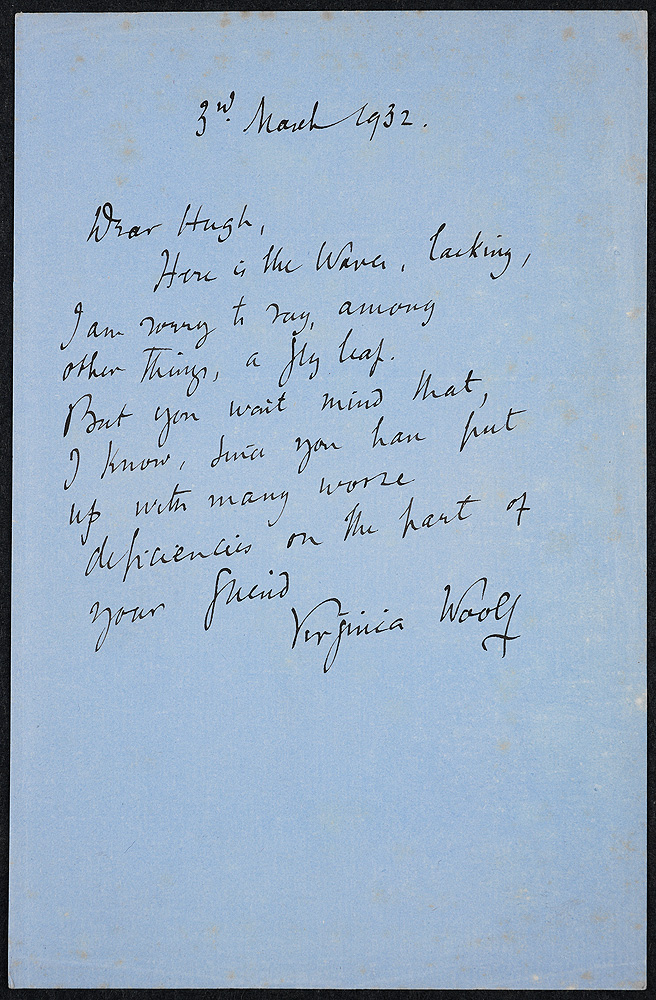 3rd. March 1932.
Dear Hugh,
Here is the Waves, lacking,
I am sorry to say, among
other things, a fly leaf.
But you wont mind that,
I know, since you have put
up with many worse
deficiencies on the part of
your friend
Virginia Woolf